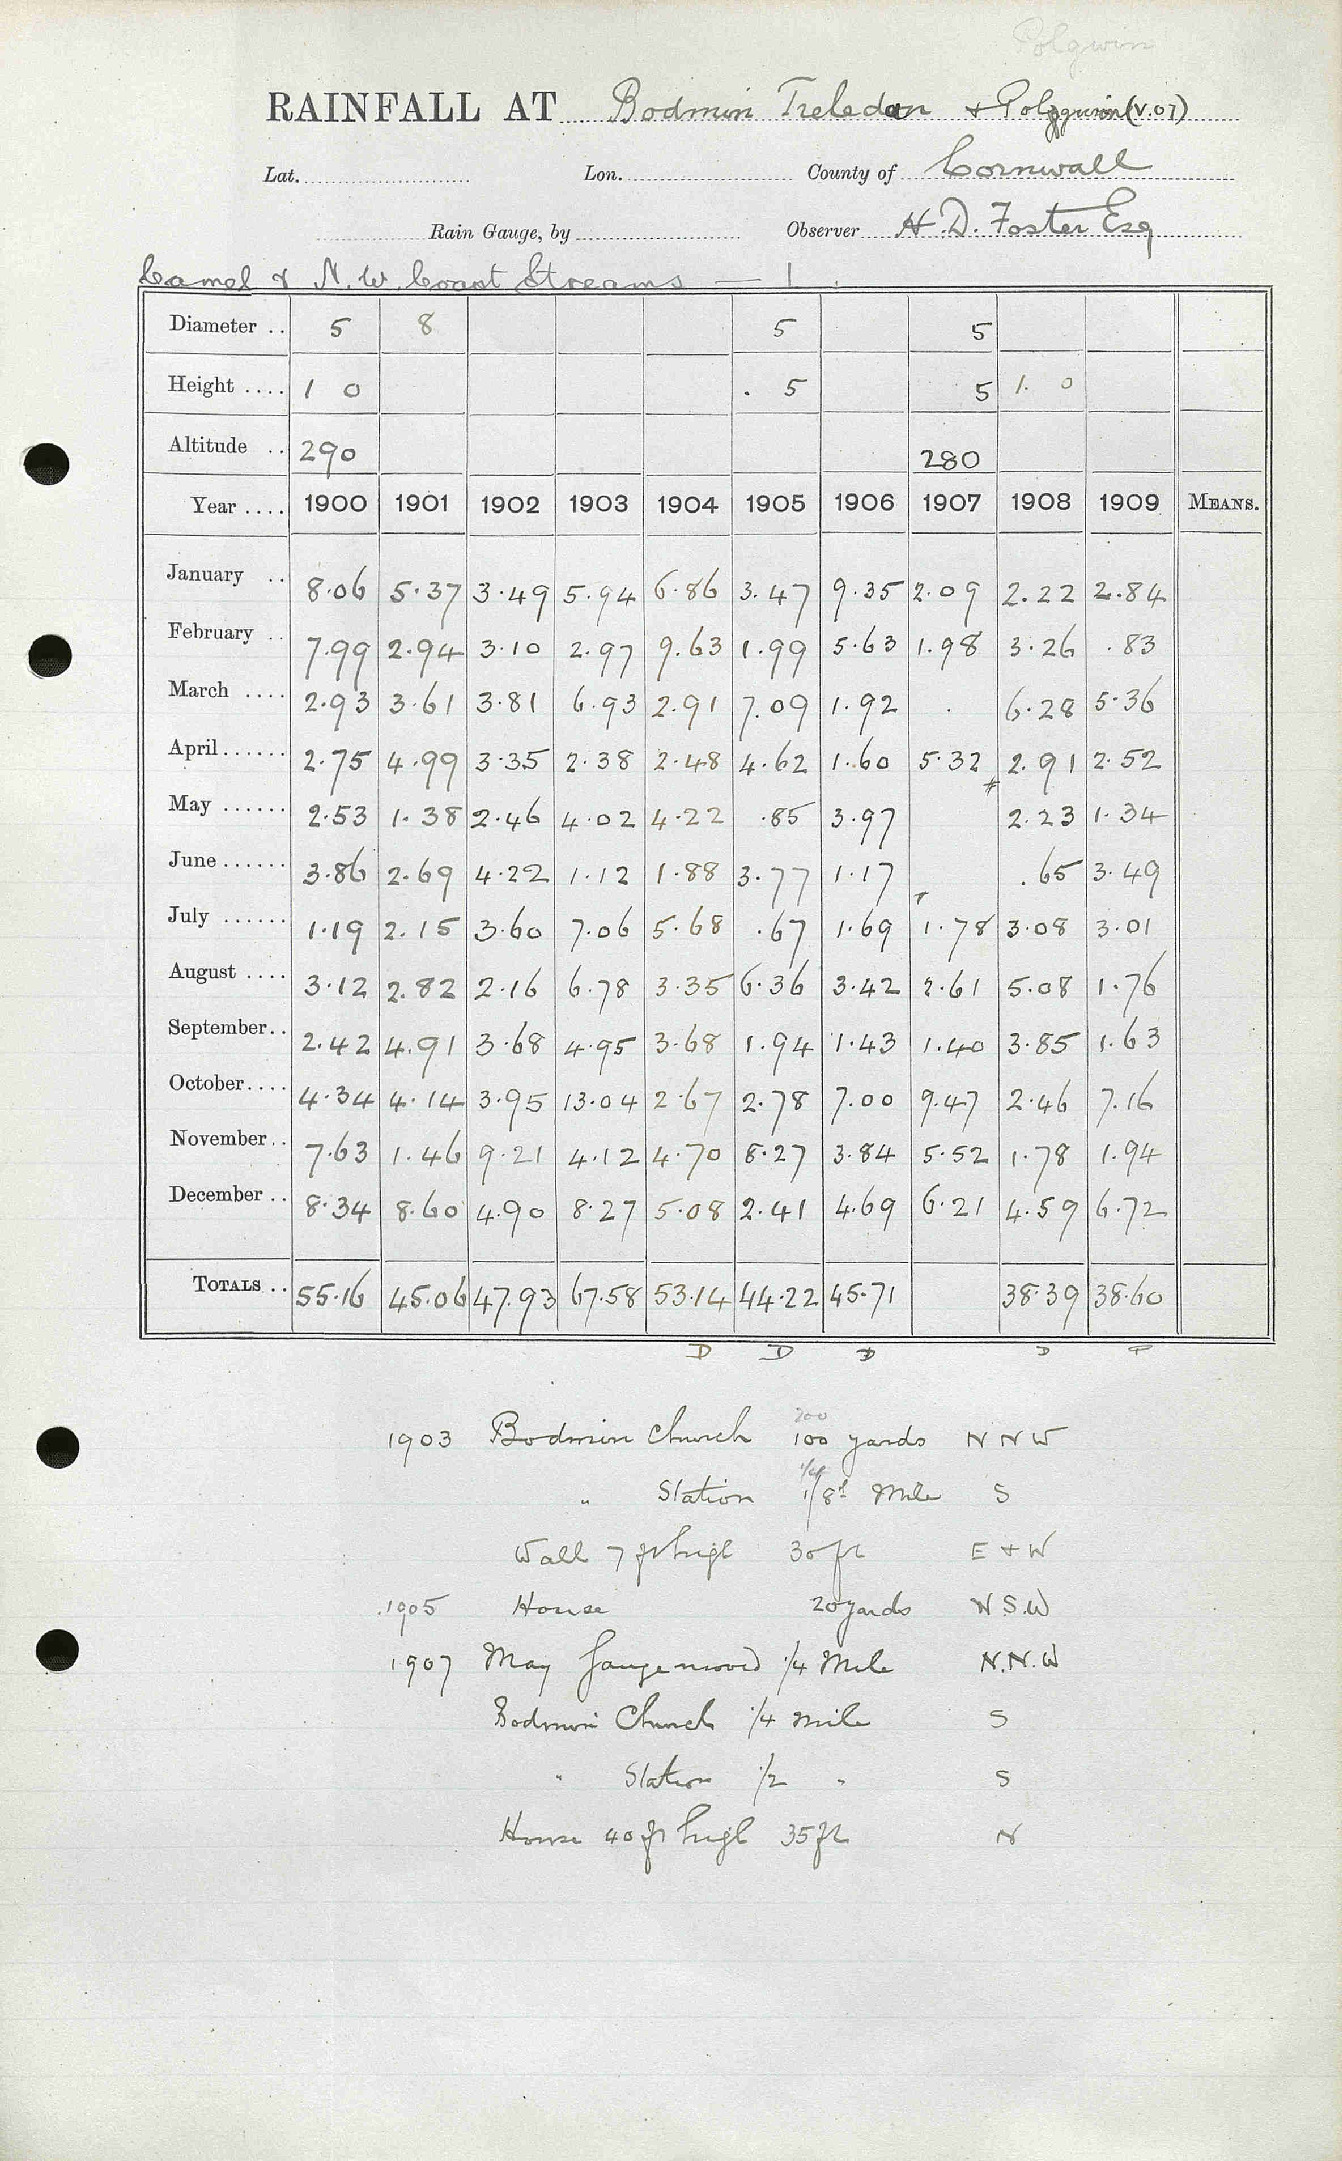 Polgwin
RAINFALL AT Bodmin Treledan + Polgwin (V.07)
Lat. Lon. County of Cornwall
Rain Gauge, by Observer H. D. Foster Esq
Camel & N.W. Coast Streams — 1.
Diameter .. 5 8 5 5
Height .... 1 0 . 5 5 1. 0
Altitude .. 290 280
Year .... 1900 1901 1902 1903 1904 1905 1906 1907 1908 1909 MEANS.
January .. 8.06 5.37 3.49 5.94 6.86 3.47 9.35 2.09 2.22 2.84
February .. 7.99 2.94 3.10 2.97 9.63 1.99 5.63 1.98 3.26 .83
March .... 2.93 3.61 3.81 6.93 2.91 7.09 1.92 . 6.28 5.36
April...... 2.75 4.99 3.35 2.38 2.48 4.62 1.60 5.32 2.91 2.52
May ...... 2.53 1.38 2.46 4.02 4.22 .85 3.97 2.23 1.34
June ...... 3.86 2.69 4.22 1.12 1.88 3.77 1.17 .65 3.49
July ...... 1.19 2.15 3.60 7.06 5.68 .67 1.69 1.78 3.08 3.01
August .... 3.12 2.82 2.16 6.78 3.35 6.36 3.42 2.61 5.08 1.76
September.. 2.42 4.91 3.68 4.95 3.68 1.94 1.43 1.40 3.85 1.63
October.... 4.34 4.14 3.95 13.04 2.67 2.78 7.00 9.47 2.46 7.16
November.. 7.63 1.46 9.21 4.12 4.70 8.27 3.84 5.52 1.78 1.94
December .. 8.34 8.60 4.90 8.27 5.08 2.41 4.69 6.21 4.59 6.72
TOTALS .. 55.16 45.06 47.93 67.58 53.14 44.22 45.71 38.39 38.60
D D D D D
200
1903 Bodmin Church 100 yards N N W
1/4
" Station 1/8th Mile S
Wall 7 ft high 30 ft E + W
1905 House 20 yards N S.W
1907 May Gauge moved 1/4 Mile N.N.W
Bodmin Church 1/4 mile S
" Station 1/2 " S
House 40 ft high 35 ft N